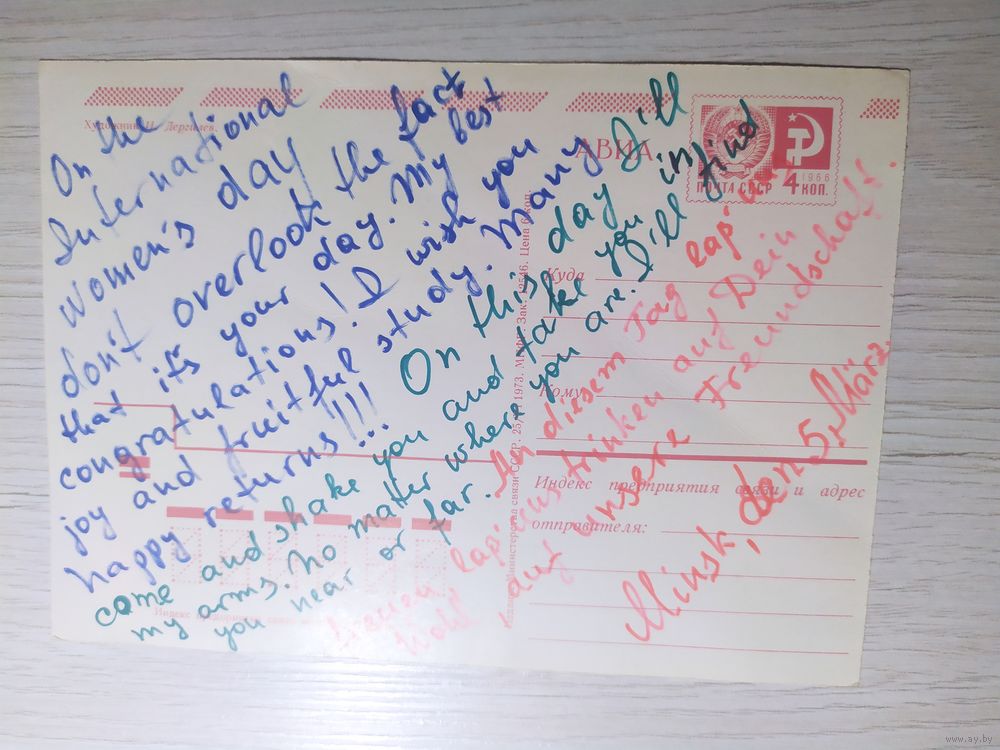 Художник И. Дергилев.
АВИА
ПОЧТА СССР
1966
4 КОП.
On the
International
Women's day
don't overlook the fact
that it's your day. My best
congratulations! I wish you
joy and fruitful study. Many
happy returns!!!...
On this day I'll
come and shake you and take you in
my arms. No matter where you are. I'll find
you near or far.
An diesem Tag
trinken auf Dein
Wohl, auf unsere Freundschaft!
Minsk, den 5. März
Куда
Кому
Индекс предприятия связи и адрес
отправителя:
Министерства связи СССР. 1973. Зак. Цена 6 коп.
www.ay.by